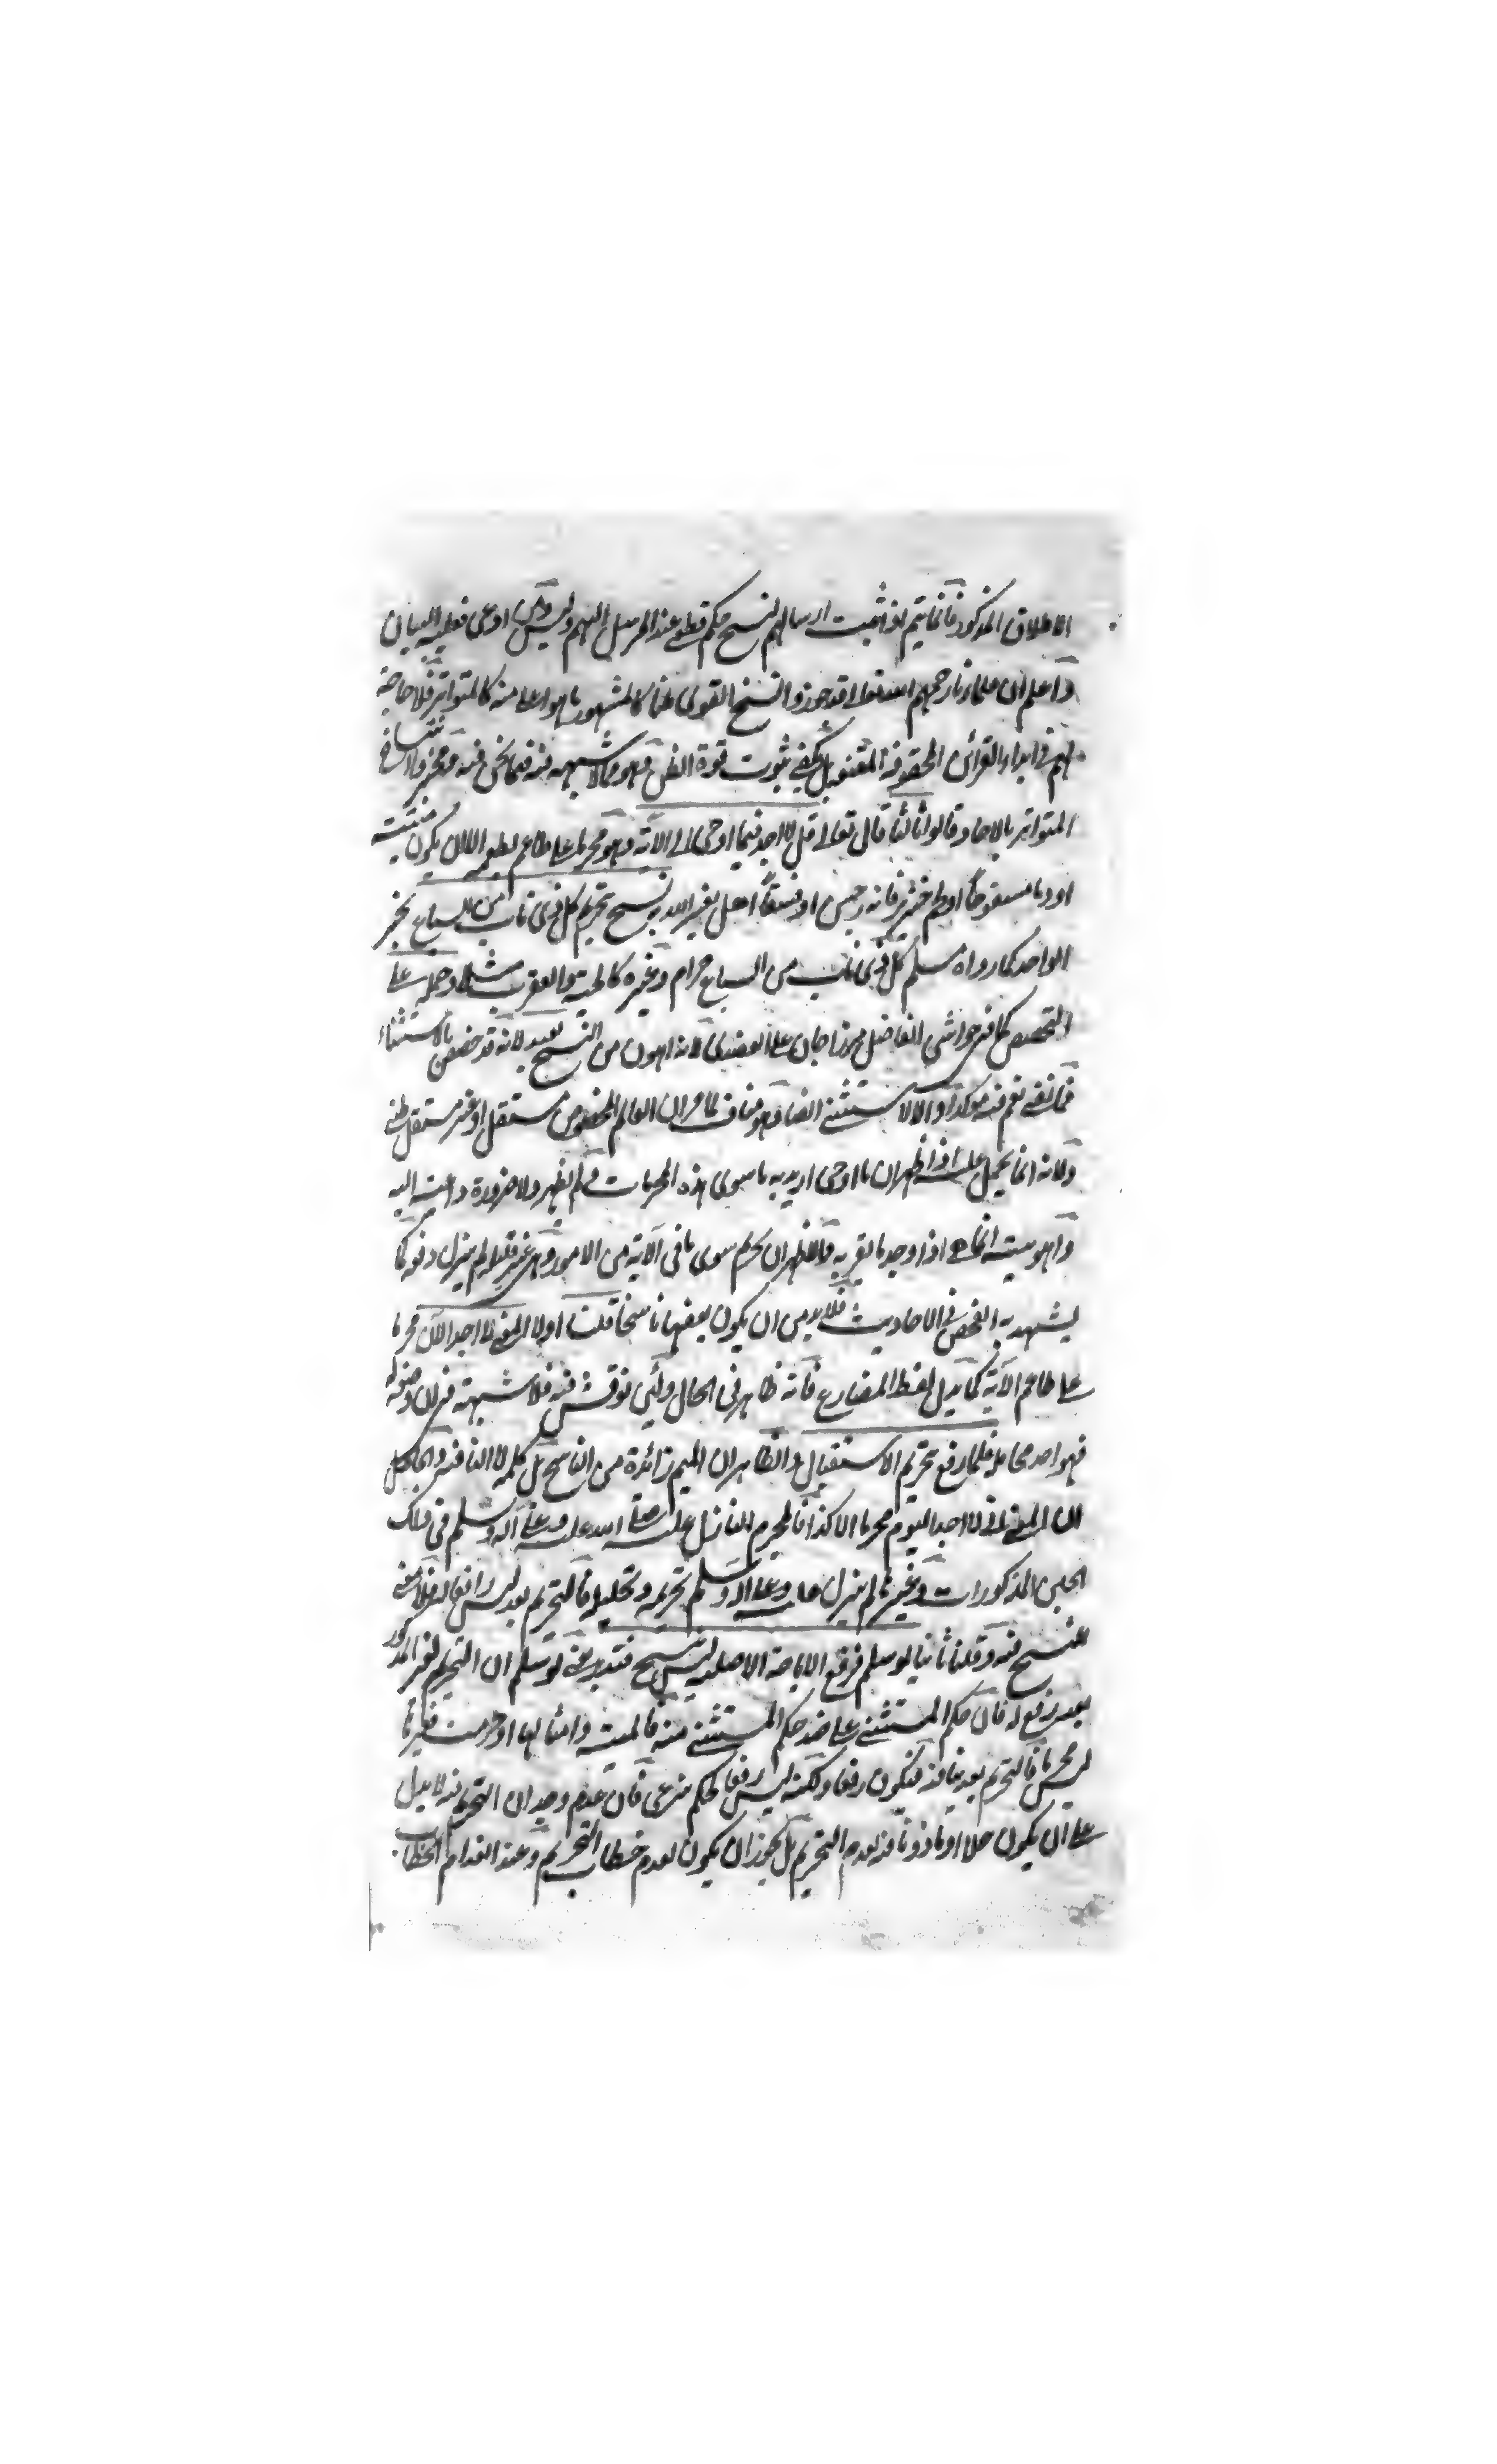 الاطلاق المذكور فانما يتم لو اثبت ارسالهم لنسخ حكم قطعي عند المرسل اليهم وليس ومن ادعى فعليه البيان
واعلم ان علماءنا رحمهم الله تعالى قد جوزوا نسخ القوي ظنا كالمشهور بما هو اعلى منه كالمتواتر فلا حاجة
لهم في ابداء القرائن المحفوفة بل يكفي ثبوت قوة الظن وهو مما لا شبهة فيه فيما نحن فيه
المتواتر بالاحاد وقالوا ثالثا قال تعالى قل لا اجد فيما اوحي الي الآية وهو محرما على طاعم يطعمه الا ان يكون ميتة
او دما مسفوحا او لحم خنزير فانه رجس او فسقا اهل لغير الله به نسخ بتحريم كل ذي ناب من السباع بخبر
الواحد كما رواه مسلم كل ذي ناب من السباع حرام وغيره كالحية والعقرب مثلا وحمله على
التخصيص كما في حواشي الفاضل ميرزا جان على العضدي لانه اهون من النسخ بعيد لانه قد خصص بالاستثناء
فما بقي نعم فيه مؤكدا والا لاستثني ايضا فهو مناف لما مر ان العام المخصوص بمستقل او غير مستقل ظني
ولانه انما يحمل عليه اذا ظهر ان ما اوحي اريد به ما سوى هذه المحرمات ولم يظهر ولا ضرورة داعية اليه
اذا وجد ما يقربه والاظهر ان تحريم سوى ما في الآية من الامور وهي غير قليلة لم ينزل دفعة كما
يشهد به الفحص في الاحاديث فلا بد من ان يكون بعضها ناسخا قلنا اولا المعنى لا اجد الآن محرما
على طاعم الآية كما يدل لفظ المضارع فانه ظاهر في الحال ولئن نوقش فيه فلا شبهة
فهو احد محامله فلما رفع تحريم الاستقبال والظاهر ان الميم زائدة من الناسخ بل كلمة لا النافية والحاصل
ان المعنى اني لا اجد اليوم محرما الا كذا فالمحرم النازل عليه صلى الله عليه وعلى آله وسلم في ذلك
الحين المذكورات وغيرها لم ينزل وعلى آله وسلم تحريمه وتحليله فالتحريم بعد ليس رافعا له فلا معنى
للنسخ فيه وقلنا ثانيا لو سلم فرفع الاباحة الاصلية ليس بنسخ فتدبر يعني لو سلم ان التحريم لغير المذكور
بعد رفع له فان حكم المستثنى على ضد حكم المستثنى منه فالميتة وامثالها اذا حرمت فغيرها
ليس محرما فالتحريم بعد ينافيه فيكون رفعا ولكنه ليس رفعا لحكم شرعي فان عدم وجدان التحريم فيه لا يدل
على ان يكون حلا او ماذونا فيه لعدم التحريم بل يجوز ان يكون لعدم خطاب التحريم وعند انعدام الخطاب